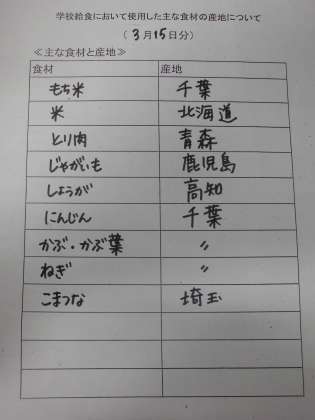 学校給食において使用した主な食材の産地について
(3月15日分)
≪主な食材と産地≫
食材 産地
もち米 千葉
米 北海道
とり肉 青森
じゃがいも 鹿児島
しょうが 高知
にんじん 千葉
かぶ・かぶ葉 〃
ねぎ 〃
こまつな 埼玉